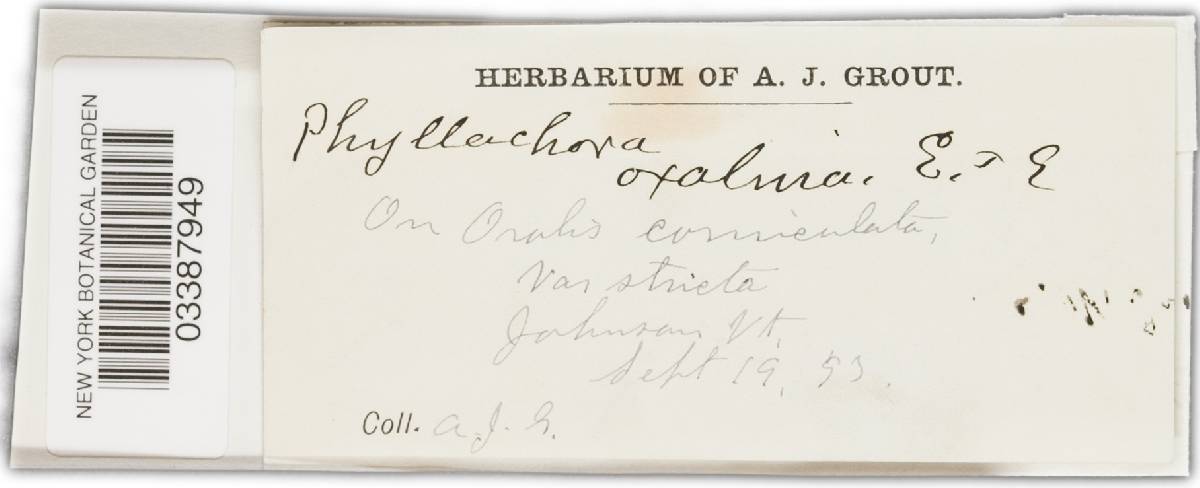 NEW YORK BOTANICAL GARDEN
03387949
HERBARIUM OF A. J. GROUT.
Phyllachora
oxalina. E. & E
On Oxalis corniculata,
Var stricta
Johnson Vt.
Sept 19, 93.
Coll. A. J. G.